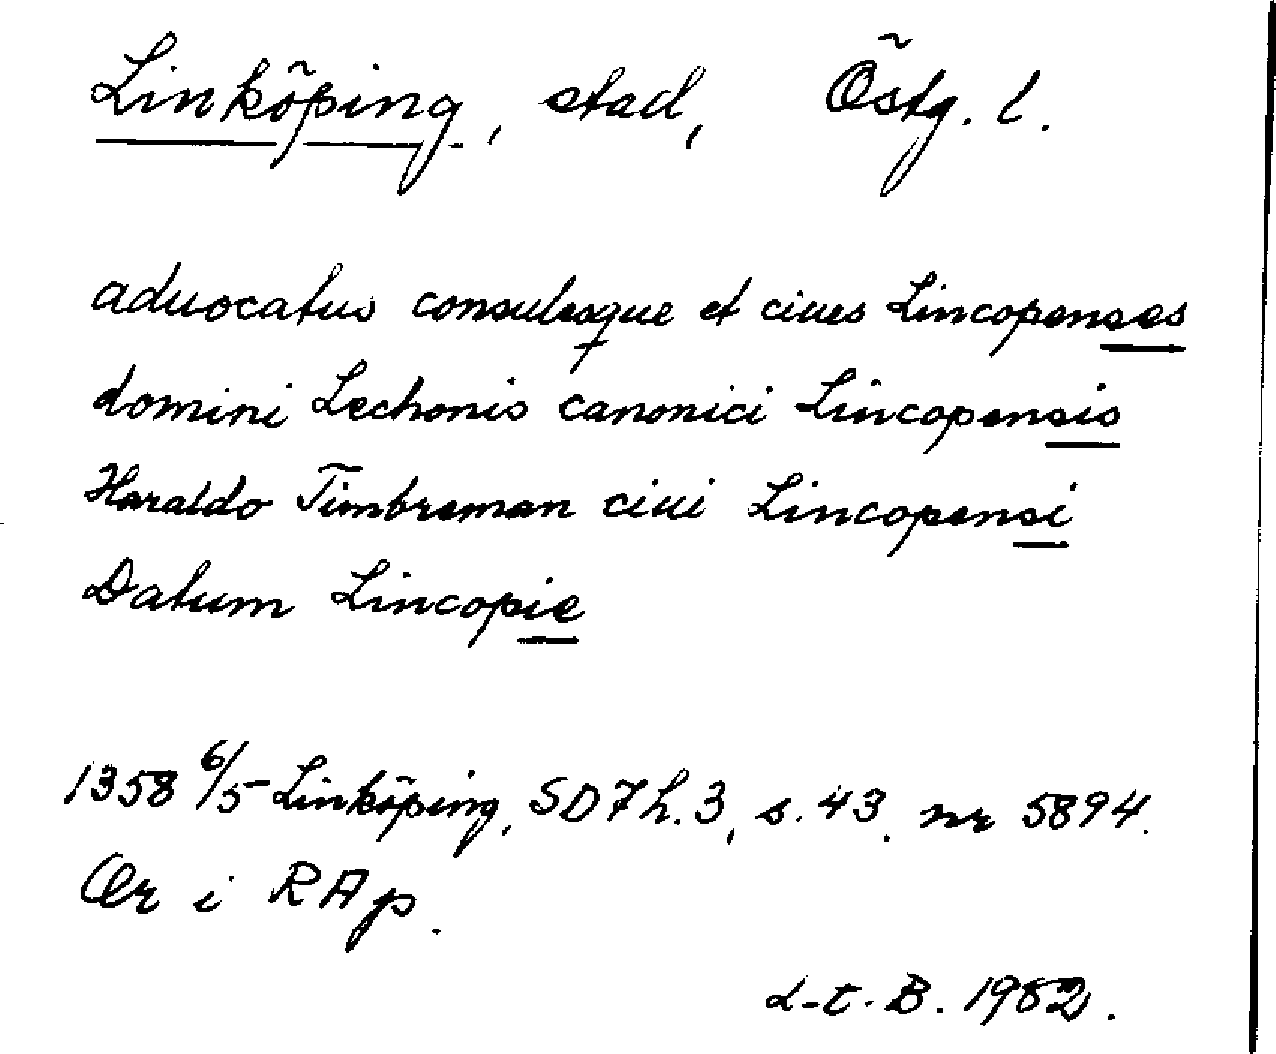 Linköping, stad, Östg. l.
aduocatus consulesque et ciues Lincopenses
domini Lechonis canonici Lincopensis
Haraldo Timbreman ciui Lincopensi
Datum Lincopie
1358 6/5 Linköping, SD 7 h. 3, s. 43. nr 5894.
Or i RAp.
L-t. B. 1982.